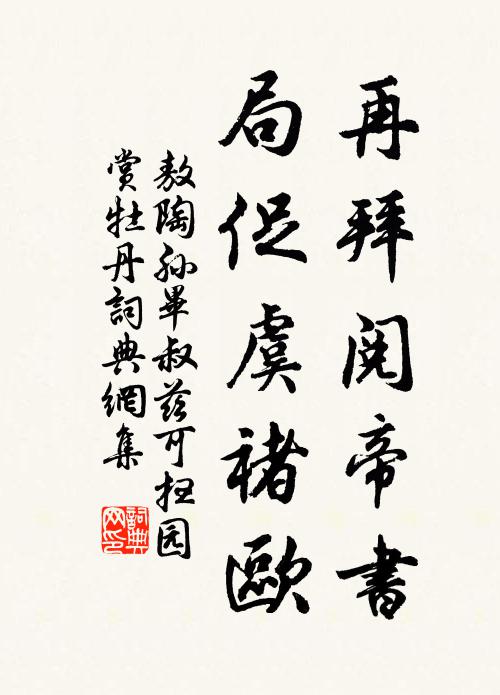 再拜閱帝書
局促虞褚歐
敖陶孫畢叔茲可抂园
賞牡丹詞典網集
詞典网印